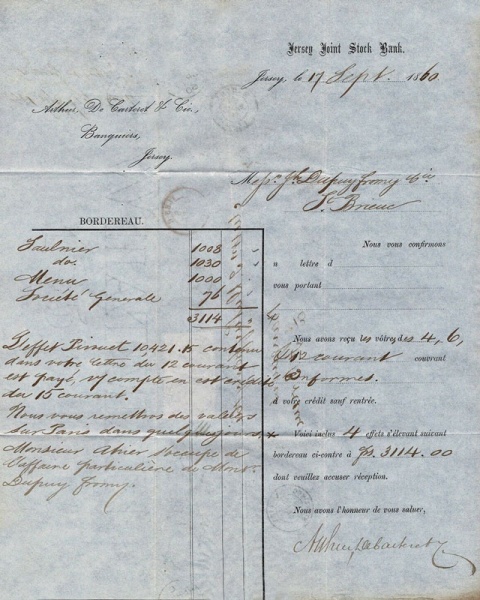 Jersey Joint Stock Bank.
Jersey, le 17 Sept. 1860
Arthur, De Carteret & Cie.,
Banquiers,
Jersey.
Messrs. Dupuy fromy & Cie
St. Brieuc
BORDEREAU.
Saulnier 1008 "
do. 1030 "
Menu 1000 "
Société Generale 76 "
3114
L'effet 10421.15 contenu
dans votre lettre du 12 courant
est payé, V/ compte en est crédité
du 15 courant.
Nous vous remettrons des valeurs
sur Paris dans quelques jours,
Monsieur Ahier s'occupe de
l'affaire particulière de Mont.
Dupuy fromy.
Nous vous confirmons
n lettre d
vous portant
Nous avons reçu les vôtres des 4, 6,
& 12 courant couvrant
conformes.
à votre crédit sauf rentrée.
Voici inclus 4 effets s'élevant suivant
bordereau ci-contre à fs. 3114.00
dont veuillez accuser réception.
Nous avons l'honneur de vous saluer,
Arthur, De Carteret & Co